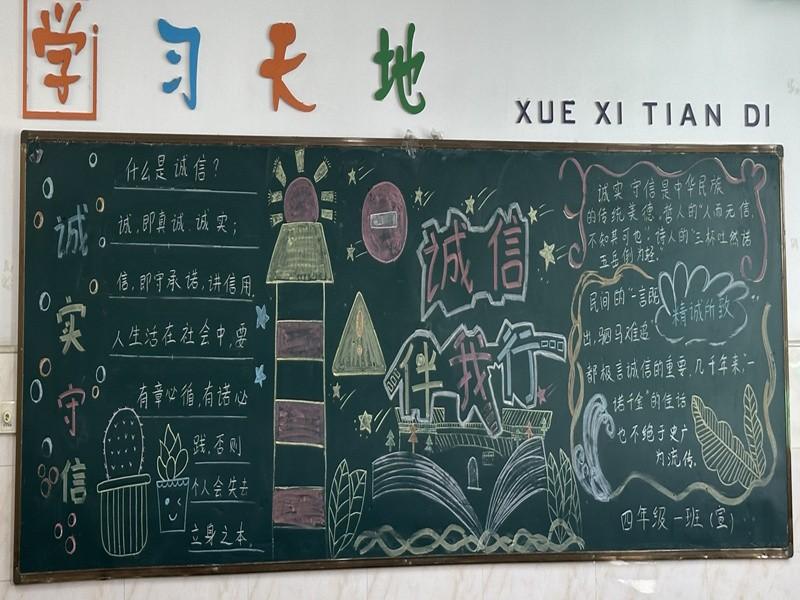 学习天地
XUE XI TIAN DI
诚实守信
什么是诚信？
诚，即真诚、诚实；
信，即守承诺，讲信用。
人生活在社会中，要
有章必循，有诺必
践，否则
个人会失去
立身之本。
诚信
伴我行
诚实守信是中华民族
的传统美德。哲人的“人而无信，
不知其可也”，诗人的“三杯吐然诺
五岳倒为轻”
民间的“一言既
出，驷马难追”
都极言诚信的重要，几千年来，“一
诺千金”的佳话
也不绝于史，广
为流传。
精诚所致
四年级一班（宣）